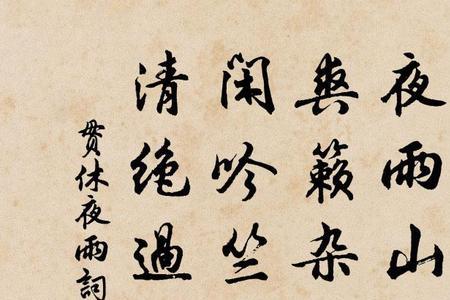 夜雨山
爽籁杂
闲吟竺
清绝過
贯休夜雨詞